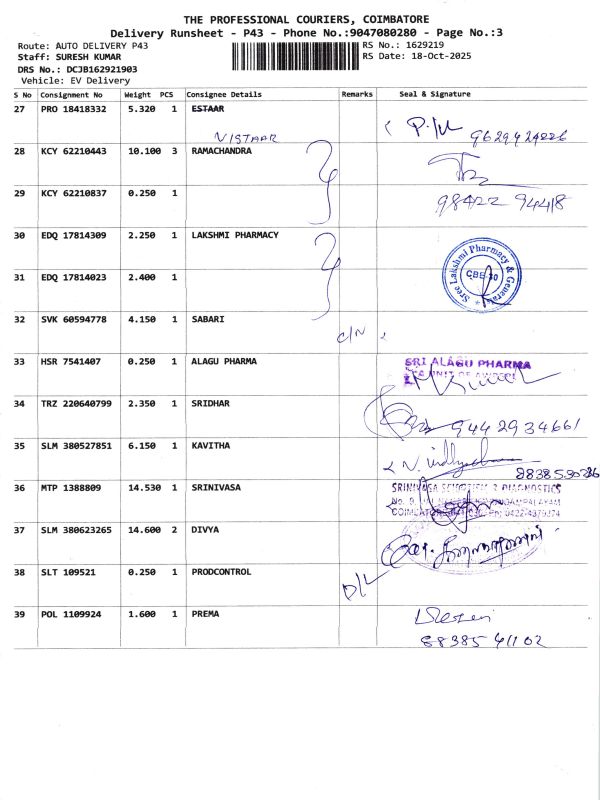 THE PROFESSIONAL COURIERS, COIMBATORE
Delivery Runsheet - P43 - Phone No.:9047080280 - Page No.:3
Route: AUTO DELIVERY P43 RS No.: 1629219
Staff: SURESH KUMAR RS Date: 18-Oct-2025
DRS No.: DCJB162921903
Vehicle: EV Delivery
S No Consignment No Weight PCS Consignee Details Remarks Seal & Signature
27 PRO 18418332 5.320 1 ESTAAR
VISTAAR
28 KCY 62210443 10.100 3 RAMACHANDRA
29 KCY 62210837 0.250 1 98422 94418
30 EDQ 17814309 2.250 1 LAKSHMI PHARMACY
Sree Lakshmi Pharmacy & General
31 EDQ 17814023 2.400 1
32 SVK 60594778 4.150 1 SABARI C/N
33 HSR 7541407 0.250 1 ALAGU PHARMA SRI ALAGU PHARMA
34 TRZ 220640799 2.350 1 SRIDHAR 9442934661
35 SLM 380527851 6.150 1 KAVITHA
36 MTP 1388809 14.530 1 SRINIVASA
37 SLM 380623265 14.600 2 DIVYA
38 SLT 109521 0.250 1 PRODCONTROL D/L
39 POL 1109924 1.600 1 PREMA
88385 41102